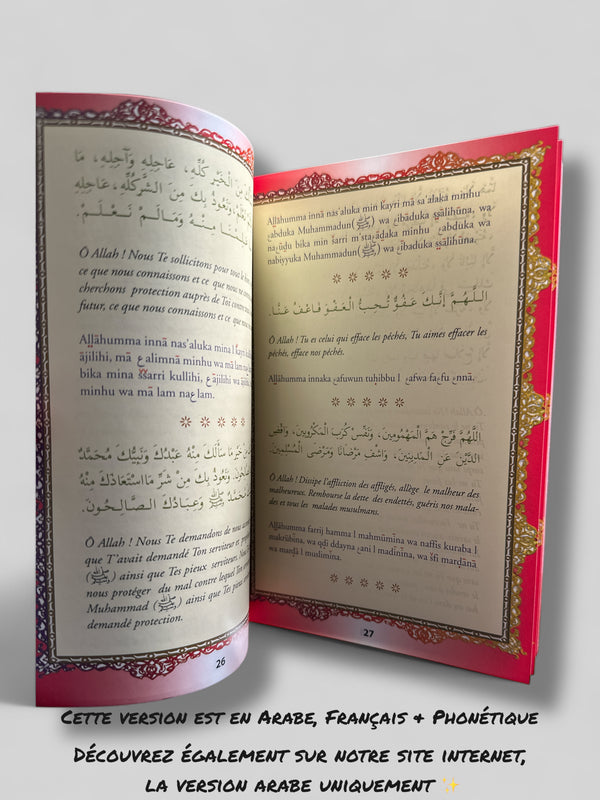 الْخَيْرِ كُلِّهِ، عَاجِلِهِ وَآجِلِهِ، مَا
وَنَعُوذُ بِكَ مِنَ الشَّرِّ كُلِّهِ، عَاجِلِهِ
مِنْهُ وَمَا لَمْ نَعْلَمْ.
Ô Allah ! Nous Te sollicitons pour tout le
ce que nous connaissons et ce que nous ne
cherchons protection auprès de Toi contre
futur, ce que nous connaissons et ce que
Allâhumma innâ nas'aluka mina l
âjilihi, mâ عalimnâ minhu wa mâ lam
bika mina ššarri kullihi, عâjilihi wa
minhu wa mâ lam naعlam.
خَيْرِ مَا سَأَلَكَ مِنْهُ عَبْدُكَ وَنَبِيُّكَ مُحَمَّدٌ
وَنَعُوذُ بِكَ مِنْ شَرِّ مَا اسْتَعَاذَكَ مِنْهُ
مُحَمَّدٌ ﷺ وَعِبَادُكَ الصَّالِحُونَ.
Ô Allah ! Nous Te demandons de nous
que T'avait demandé Ton serviteur et
(ﷺ) ainsi que Tes pieux serviteurs. Nous
nous protéger du mal contre lequel Ton
Muhammad (ﷺ) ainsi que Tes pieux
demandé protection.
26
Allâhumma innâ nas'aluka min kayri mâ sa'alaka minhu
عabduka Muhammadun(ﷺ) wa عibâduka ssâlihûna, wa
naعûdu bika min šarri m staعâdaka minhu عabduka wa
nabiyyuka Muhammadun(ﷺ) wa عibâduka ssâlihûna.
اللَّهُمَّ إِنَّكَ عَفُوٌّ تُحِبُّ الْعَفْوَ فَاعْفُ عَنَّا.
Ô Allah ! Tu es celui qui efface les péchés, Tu aimes effacer les
péchés, efface nos péchés.
Allâhumma innaka عafuwun tuhibbu l عafwa faعfu عnnâ.
اللَّهُمَّ فَرِّجْ هَمَّ الْمَهْمُومِينَ، وَنَفِّسْ كُرَبَ الْمَكْرُوبِينَ، وَاقْضِ
الدَّيْنَ عَنِ الْمَدِينِينَ، وَاشْفِ مَرْضَانَا وَمَرْضَى الْمُسْلِمِينَ.
Ô Allah ! Dissipe l'affliction des affligés, allège le malheur des
malheureux. Rembourse la dette des endettés, guéris nos mala-
des et tous les malades musulmans.
Allâhumma farrij hamma l mahmûmîna wa naffis kuraba l
makrûbîna, wa qdi ddayna عani l madînîna, wa šfi mardânâ
wa mardâ l muslimîna.
27
Cette version est en Arabe, Français & Phonétique
Découvrez également sur notre site internet,
la version arabe uniquement ✨